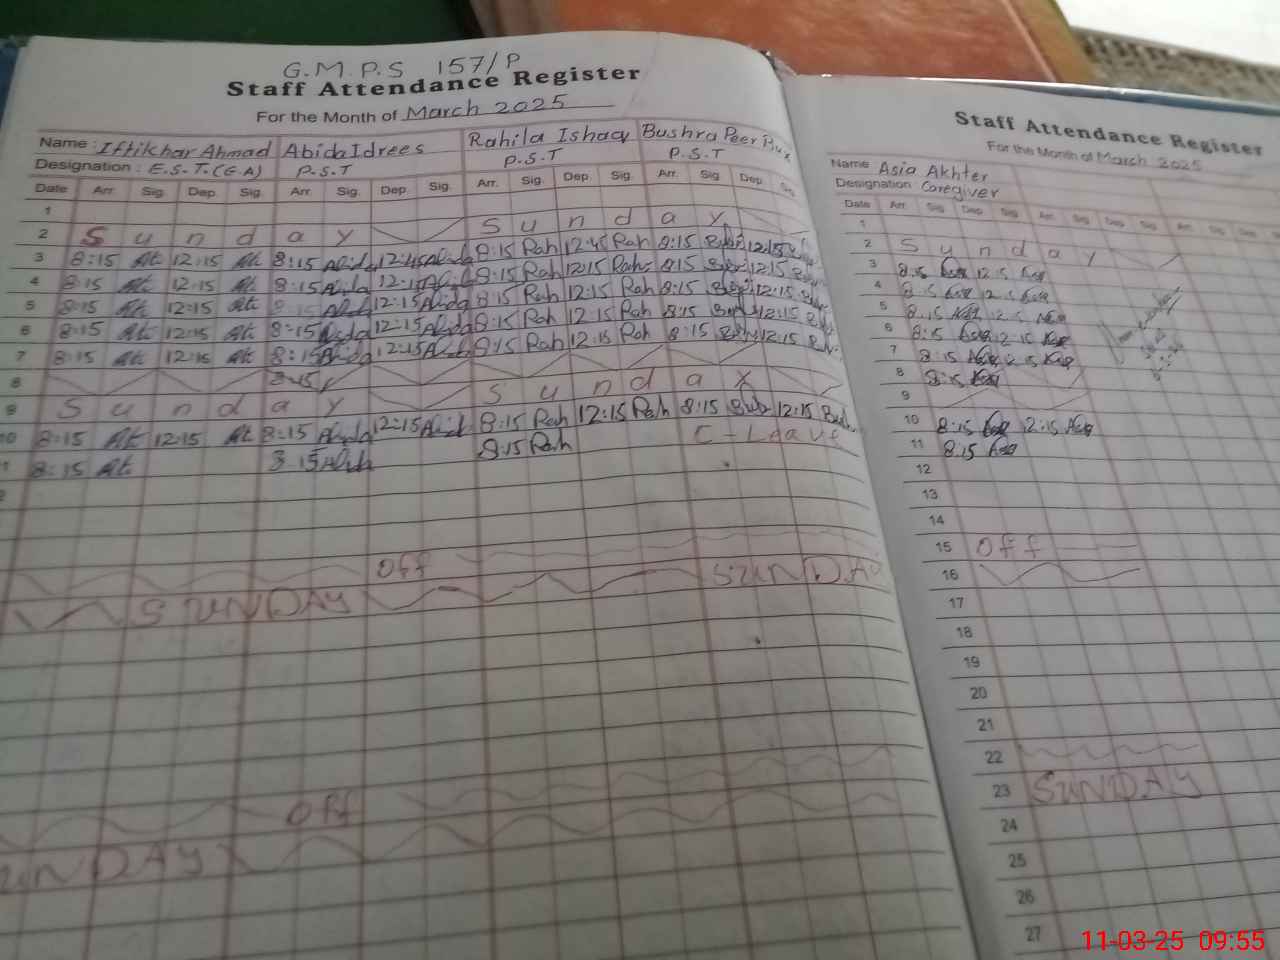 G.M.P.S 157/P
Staff Attendance Register
For the Month of March 2025
Name : Iftikhar Ahmad Abida Idrees Rahila Ishaq Bushra Peer Bux
Designation : E.S.T.(G A) P.S.T P.S.T P.S.T
Date Arr. Sig. Dep. Sig. Arr. Sig. Dep. Sig. Arr. Sig. Dep. Sig. Arr. Sig. Dep. Sig.
1
2 S u n d a y S u n d a y
3 8:15 12:15 8:15 Abida 12:45 Abida 8:15 Rah 12:45 Rah 8:15 12:15
4 8:15 12:15 8:15 Abida 12:15 Abida 8:15 Rah 12:15 Rah 8:15 12:15
5 8:15 12:15 8:15 Abida 12:15 Abida 8:15 Rah 12:15 Rah 8:15 12:15
6 8:15 12:15 8:15 Abida 12:15 Abida 8:15 Rah 12:15 Rah 8:15 12:15
7 8:15 12:15 8:15 Abida 12:15 Abida 8:15 Rah 12:15 Rah 8:15 12:15
8 8:15
9 S u n d a y S u n d a y
10 8:15 12:15 8:15 Abida 12:15 Abida 8:15 Rah 12:15 Rah 8:15 Bush 12:15 Bush
1 8:15 8:15 Abida 8:15 Rah C - Leave
2
Off
SUNDAY SUNDAY
Off
SUNDAY
Staff Attendance Register
For the Month of March 2025
Name Asia Akhter
Designation Caregiver
Date Arr. Sig. Dep. Sig. Arr. Sig. Dep. Sig. Arr. Sig.
1
2 S u n d a y
3 8:15 12:15
4 8:15 12:15
5 8:15 12:15
6 8:15 12:15
7 8:15 12:15
8 8:15
9
10 8:15 12:15
11 8:15
12
13
14
15 Off
16
17
18
19
20
21
22
23 SUNDAY
24
25
26
27
11-03-25 09:55